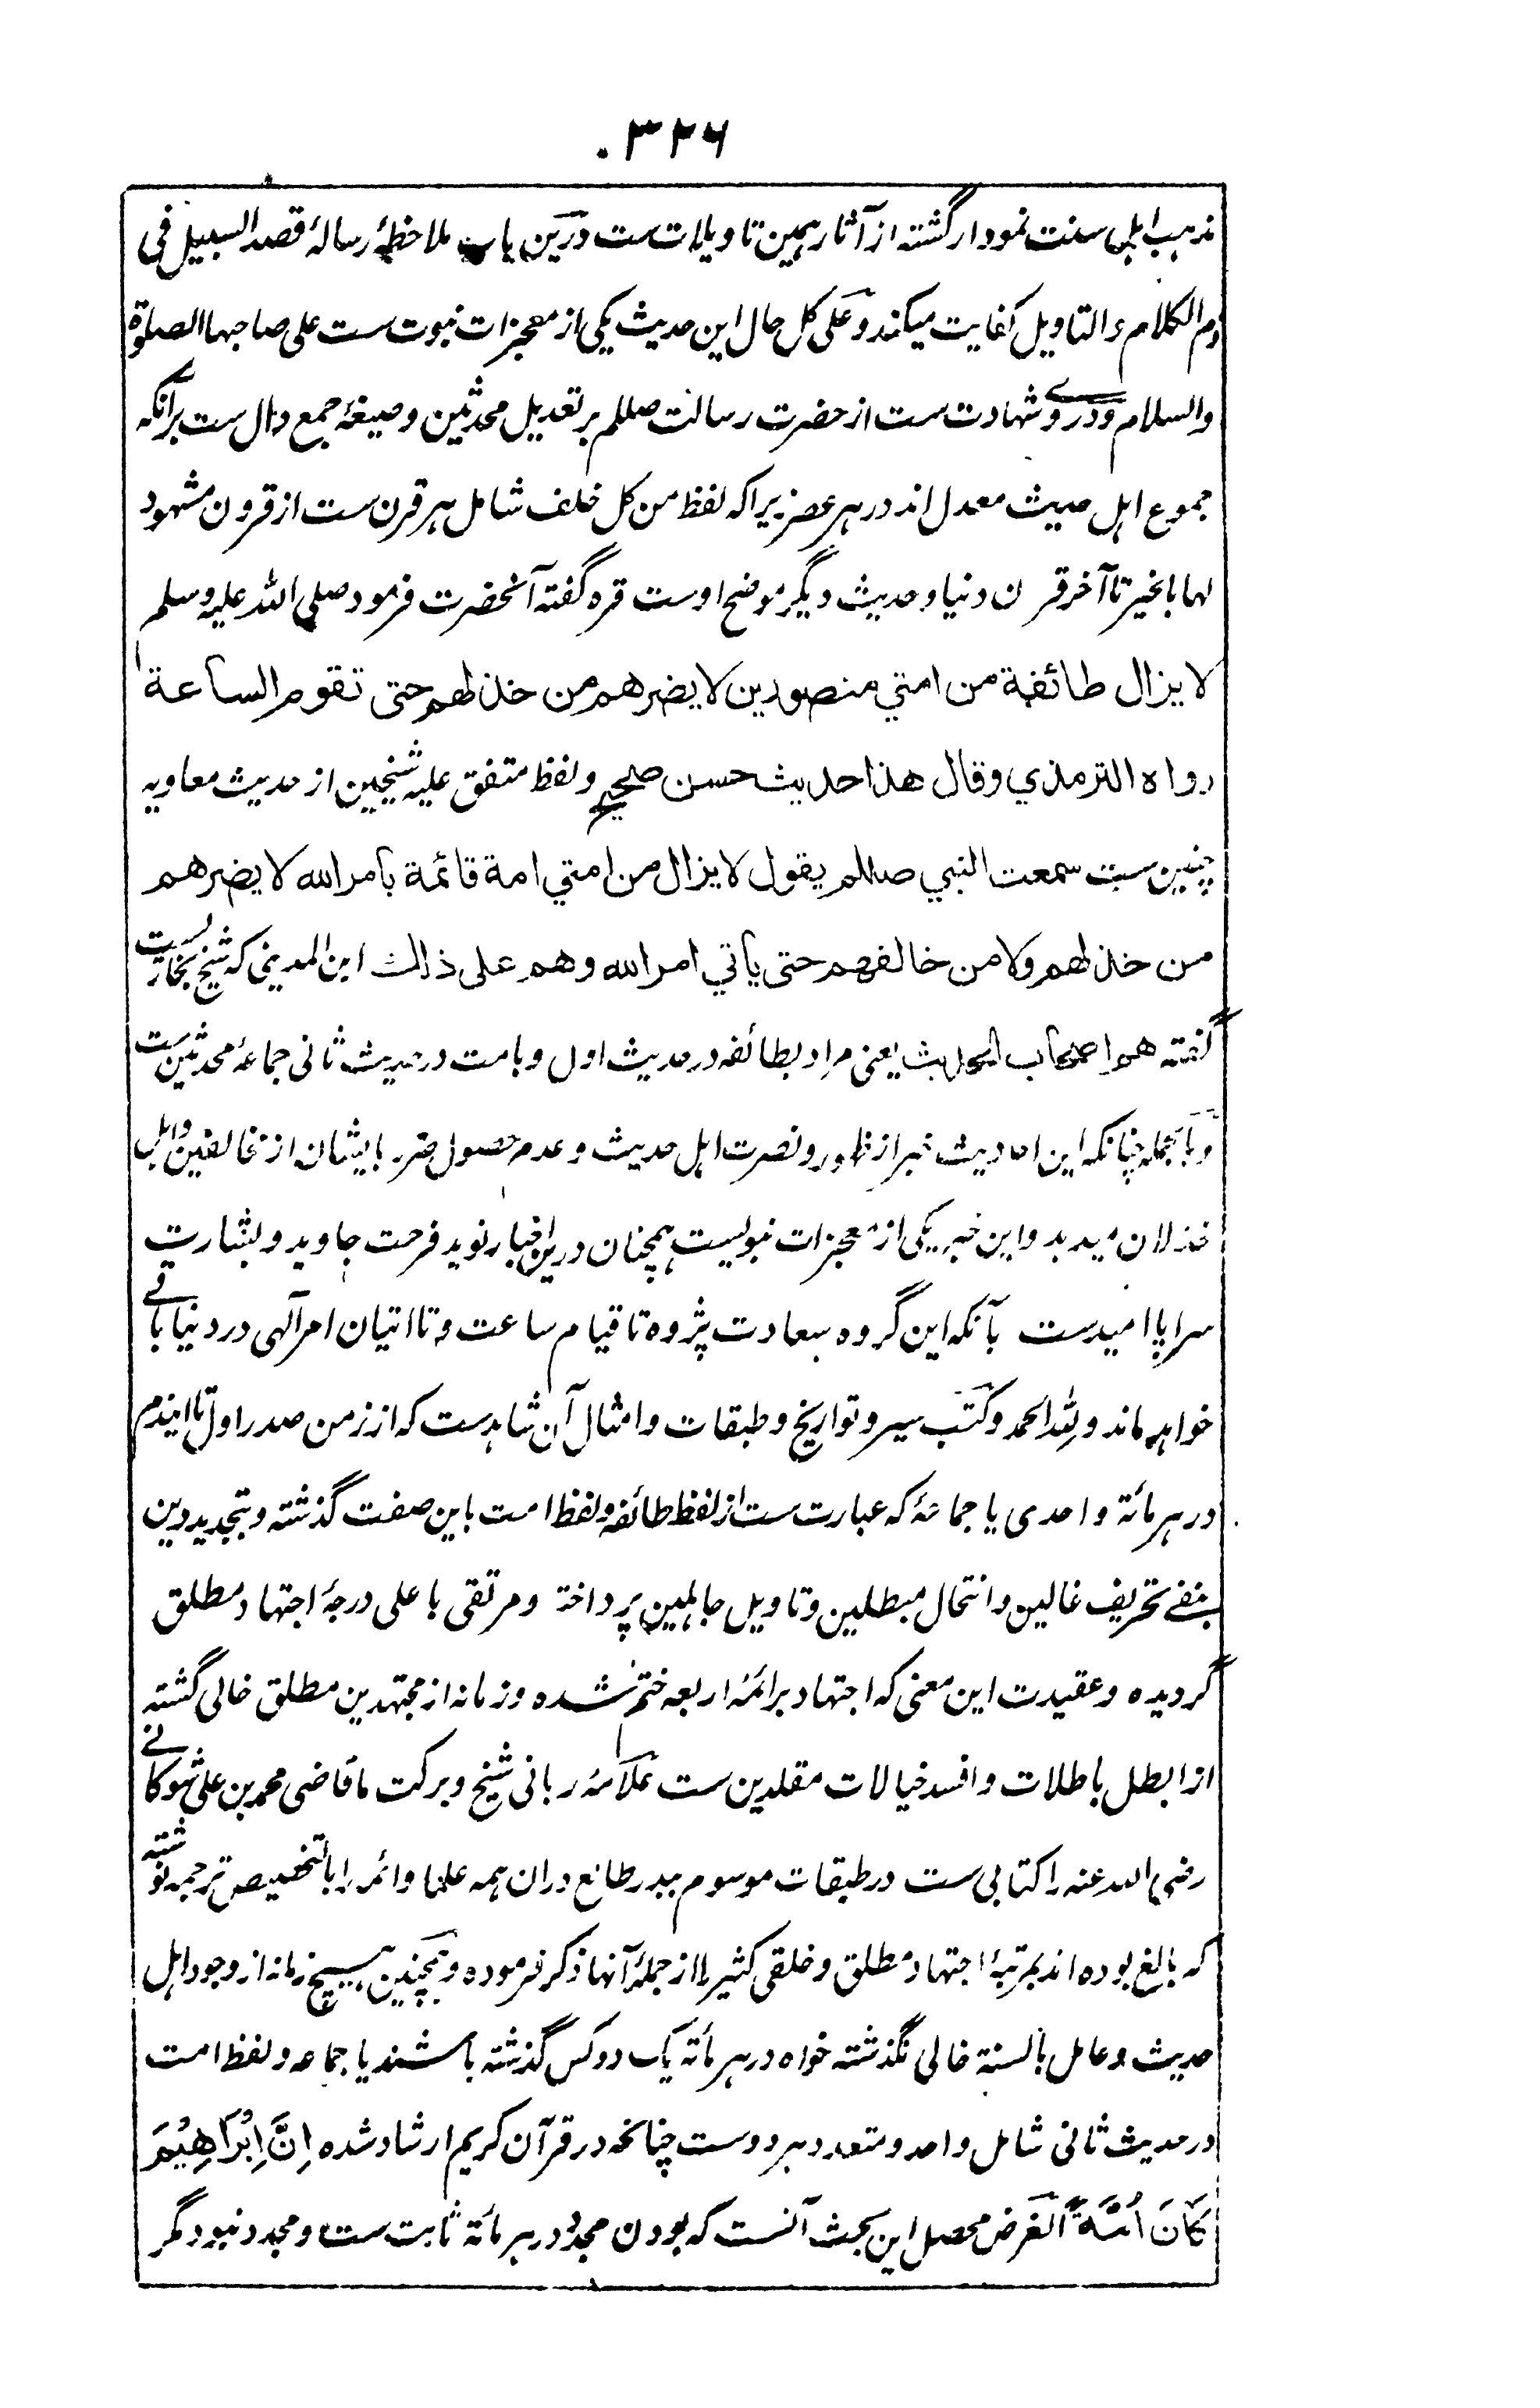 ۳۲۶
مذہب اہل سنت نمودار گشتہ از آثار ہمین تاویلات ست درین باب ملاحظۂ رسالۂ قصد السبیل فی
ذم الکلام و التاویل کفایت میکند و علی کل حال این حدیث یکی از معجزات نبوت ست علی صاحبہا الصلوة
والسلام و دروے شہادت ست از حضرت رسالت صللم بر تعدیل محدثین و صیغۂ جمع دال ست برآنکہ
جموع اہل حدیث معدل اند در ہر عصر زیراکہ لفظ من کل خلف شامل ہر قرن ست از قرون مشہود
لہا بالخیر تا آخر قرن دنیا و حدیث دیگر موضح اوست قرہ گفتہ آنحضرت فرمود صلی اللہ علیہ وسلم
لا یزال طائفة من امتي منصورین لا یضرهم من خذلهم حتی تقوم الساعة
رواه الترمذي وقال هذا حدیث حسن صحیح و لفظ متفق علیہ شیخین از حدیث معاویہ
چنین ست سمعت النبي صللم یقول لا یزال من امتي امة قائمة بأمر الله لا یضرهم
من خذلهم ولا من خالفهم حتی یأتي امر الله وهم علی ذالك ابن المدینی کہ شیخ بخاریست
گفتہ هم اصحاب الحدیث یعنی مراد بطائفہ در حدیث اول و بامت در حدیث ثانی جماعۂ محدثین ست
و بالجملہ چنانکہ این احادیث خبر از ظہور و نصرت اہل حدیث و عدم حصول ضرر بایشان از مخالفین و اہل
خذلان میدہد و این خبر یکی از معجزات نبویست ہمچنان درین اخبار نوید فرحت جاوید و بشارت
سراپا امیدست بآنکہ این گروہ سعادت پژوہ تا قیام ساعت و تا اتیان امر آلہی در دنیا باقے
خواہد ماند و للہ الحمد و کتب سیر و تواریخ و طبقات و امثال آن شاہدست کہ از زمن صدر اول تا ایندم
در ہر مأتہ واحدی یا جماعۂ کہ عبارت ست از لفظ طائفہ و لفظ امت باین صفت گذشتہ و بتجدید دین
بنفے تحریف غالین و انتحال مبطلین و تاویل جاہلین پرداختہ و مرتقی باعلی درجۂ اجتہاد مطلق
گردیدہ و عقیدت این معنی کہ اجتہاد برائمۂ اربعہ ختم شدہ و زمانہ از مجتہدین مطلق خالی گشتہ
از ابطل باطلات و افسد خیالات مقلدین ست علامۂ ربانی شیخ و برکت ما قاضی محمد بن علی شوکانے
رضی اللہ عنہ را کتابی ست در طبقات موسوم ببدر طالع دران ہمہ علما و ائمہ را بالتخصیص ترجمہ نوشتہ
کہ بالغ بودہ اند بمرتبۂ اجتہاد مطلق و خلقی کثیر را از جملۂ آنہا ذکر فرمودہ و ہمچنین ہیچ زمانہ از وجود اہل
حدیث و عامل بالسنة خالی نگذشتہ خواہ در ہر مأتہ یک دو کس گذشتہ باشند یا جماعہ و لفظ امت
در حدیث ثانی شامل واحد و متعدد ہر دوست چنانچہ در قرآن کریم ارشاد شدہ اِنَّ اِبْرَاهِیْمَ
كَانَ اُمَّةً الغرض محصل این بحث آنست کہ بودن مجدد در ہر مأتہ ثابت ست و مجدد نبود مگر